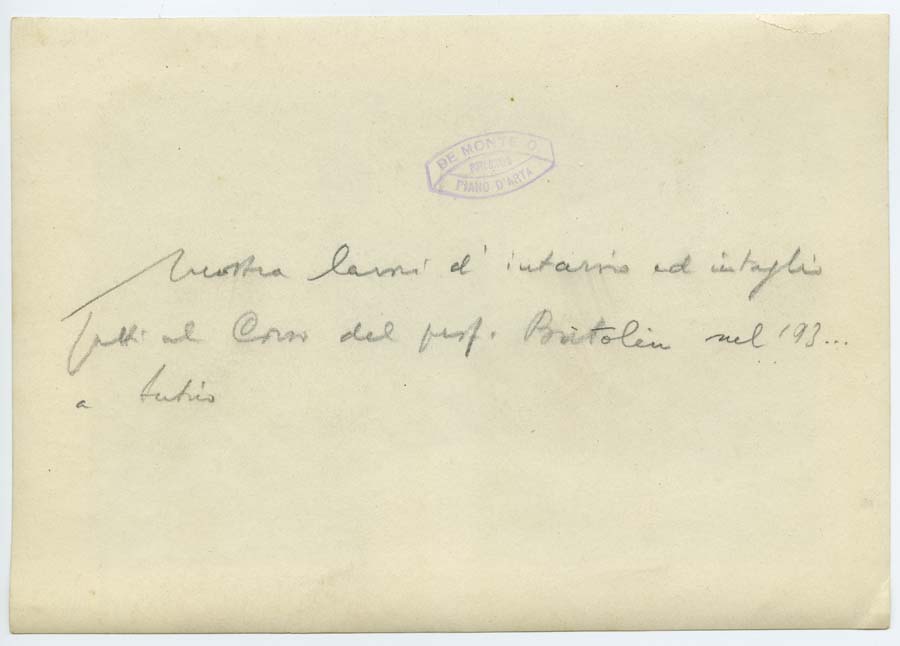 DE MONTE O.
PIANO D'ARTA
Mostra lavori d'intarsio ed intaglio
fatti al Corso del prof. Bortolin nel '93...
a